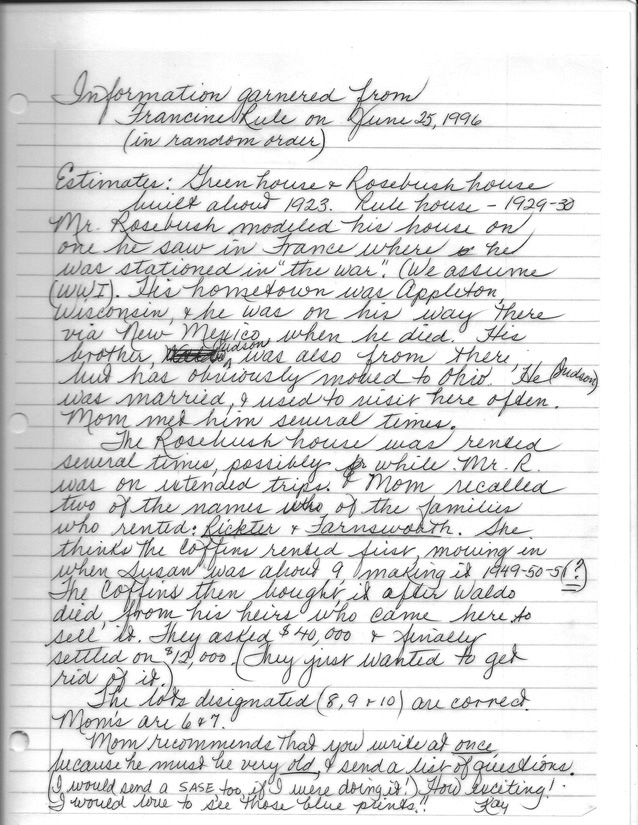 Information garnered from
Francine Rule on June 25, 1996
(in random order)
Estimates: Green house & Rosebush house
built about 1923. Rule house - 1929-30
Mr. Rosebush modeled his house on
one he saw in France where he
was stationed in "the war". (We assume
(WWI). His hometown was Appleton,
Wisconsin, & he was on his way there
via New Mexico, when he died. His
brother, Judson, was also from there,
but has obviously moved to Ohio. He (Judson)
was married, & used to visit here often.
Mom met him several times.
The Rosebush house was rented
several times, possibly while Mr. R.
was on extended trips. Mom recalled
two of the names of the families
who rented: Rickter & Farnsworth. She
thinks the Coffins rented first, moving in
when Susan was about 9, making it 1949-50-51(?)
The Coffins then bought it after Waldo
died, from his heirs who came here to
sell it. They asked $40,000 & finally
settled on $12,000. (They just wanted to get
rid of it.)
The lots designated (8, 9 & 10) are correct.
Mom's are 6 & 7.
Mom recommends that you write at once,
because he must be very old, & send a list of questions.
(I would send a SASE, too, if I were doing it!) How exciting!
I would love to see those blue prints!! Kay